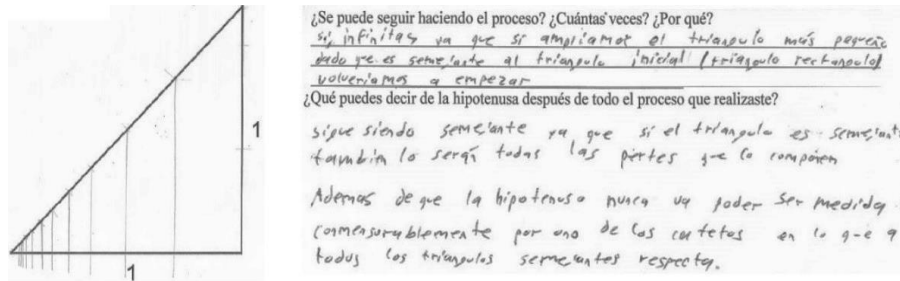 ¿Se puede seguir haciendo el proceso? ¿Cuántas veces? ¿Por qué?
si, infinitas ya que si ampliamos el triangulo más pequeño
dado que es semejante al triangulo inicial (triangulo rectangulo)
volveriamos a empezar
¿Qué puedes decir de la hipotenusa después de todo el proceso que realizaste?
sigue siendo semejante ya que si el triangulo es semejante
también lo serán todas las partes que lo componen
Ademas de que la hipotenusa nunca va poder ser medida
conmensurablemente por uno de los catetos en lo que a
todos los triangulos semejantes respecta.
1
1